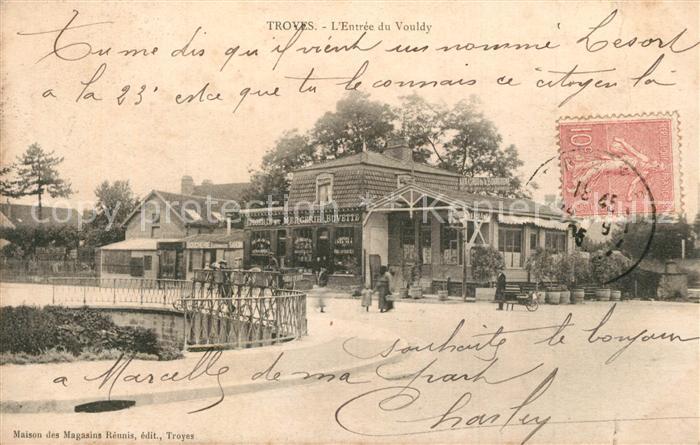 TROYES. - L'Entrée du Vouldy
Tu me dis qu'il vient un nommé Lesort
à la 23e est-ce que tu le connais ce citoyen là
10
MERCERIE BUVETTE
souhaite le bonjour
à Marcelle de ma part
Charley
Maison des Magasins Réunis, édit., Troyes
copyright delcampe.net